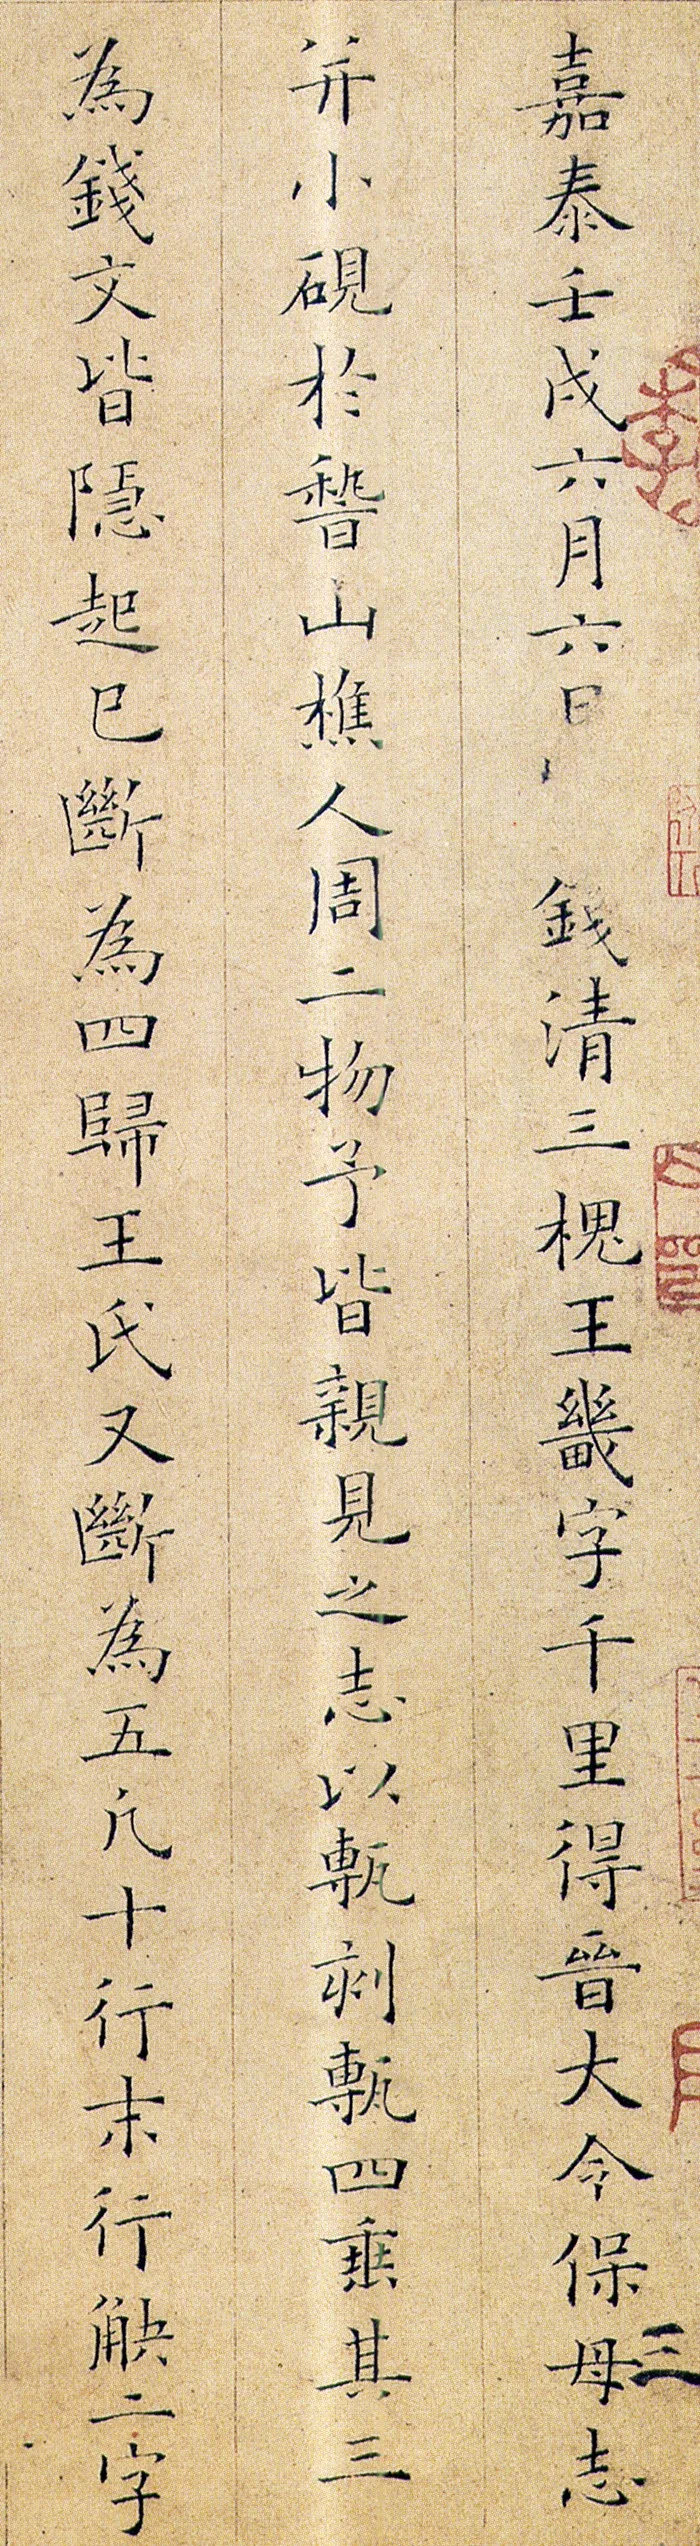 嘉泰壬戌六月六日 錢清三槐王畿字千里得晉大令保母志
并小硯於稽山樵人周二物予皆親見之志以甎刻甎四垂其三
為錢文皆隱起已斷為四歸王氏又斷為五凢十行末行觖二字
三